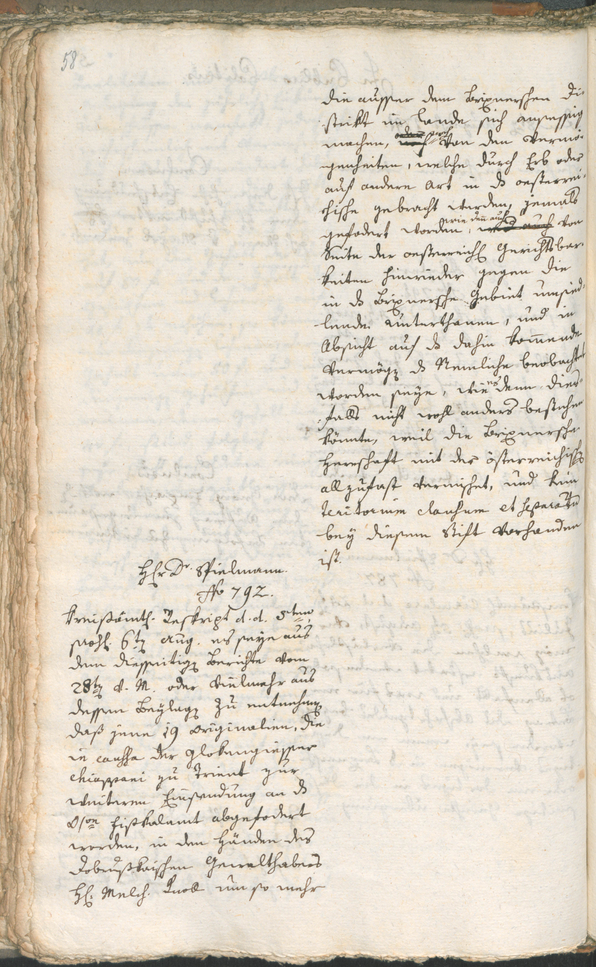 58
die ausser dem Brixnerschen Di-
strikt im Lande sich ansessig
machen, oder auch von den Vermö-
genheiten, welche durch Erb oder
auf andere Art in das oesterrei-
chische gebracht werden, jemals
gefodert worden, wie dann auch von
Seite der oesterreichl. Gerichtsbar-
keiten hinwieder gegen die
in das Brixnersche Gebiet umsied-
lende Unterthanen, und in
Absicht auf das dahin kommende
Vermögen das Nemliche beobachtet
worden seye, wie denn dies-
falls nicht wohl anders bestehen
könnte, weil die Brixnersche
Herrschaft mit der österreichisch.
allzufast vermischet, und kein
Teritorium clausum et separatum
bey diesem Stift vorhanden
ist.
H. Dr. Spielmann
No 792.
Kreisämtl. Reskript d. d. 5ten
prost. 6ten Aug. es seye aus
dem diesseitigen Berichte vom
28ten v. M. oder vielmehr aus
dessen Beylage zu entnehmen,
daß jene 19 Originalien, die
in causa der Glokengiesser
Chiappani zu Trient zur
weiteren Einsendung an das
Fiskalamt abgefodert
worden, in den Händen des
Gewalthabers
H. Melch. Knob um so mehr